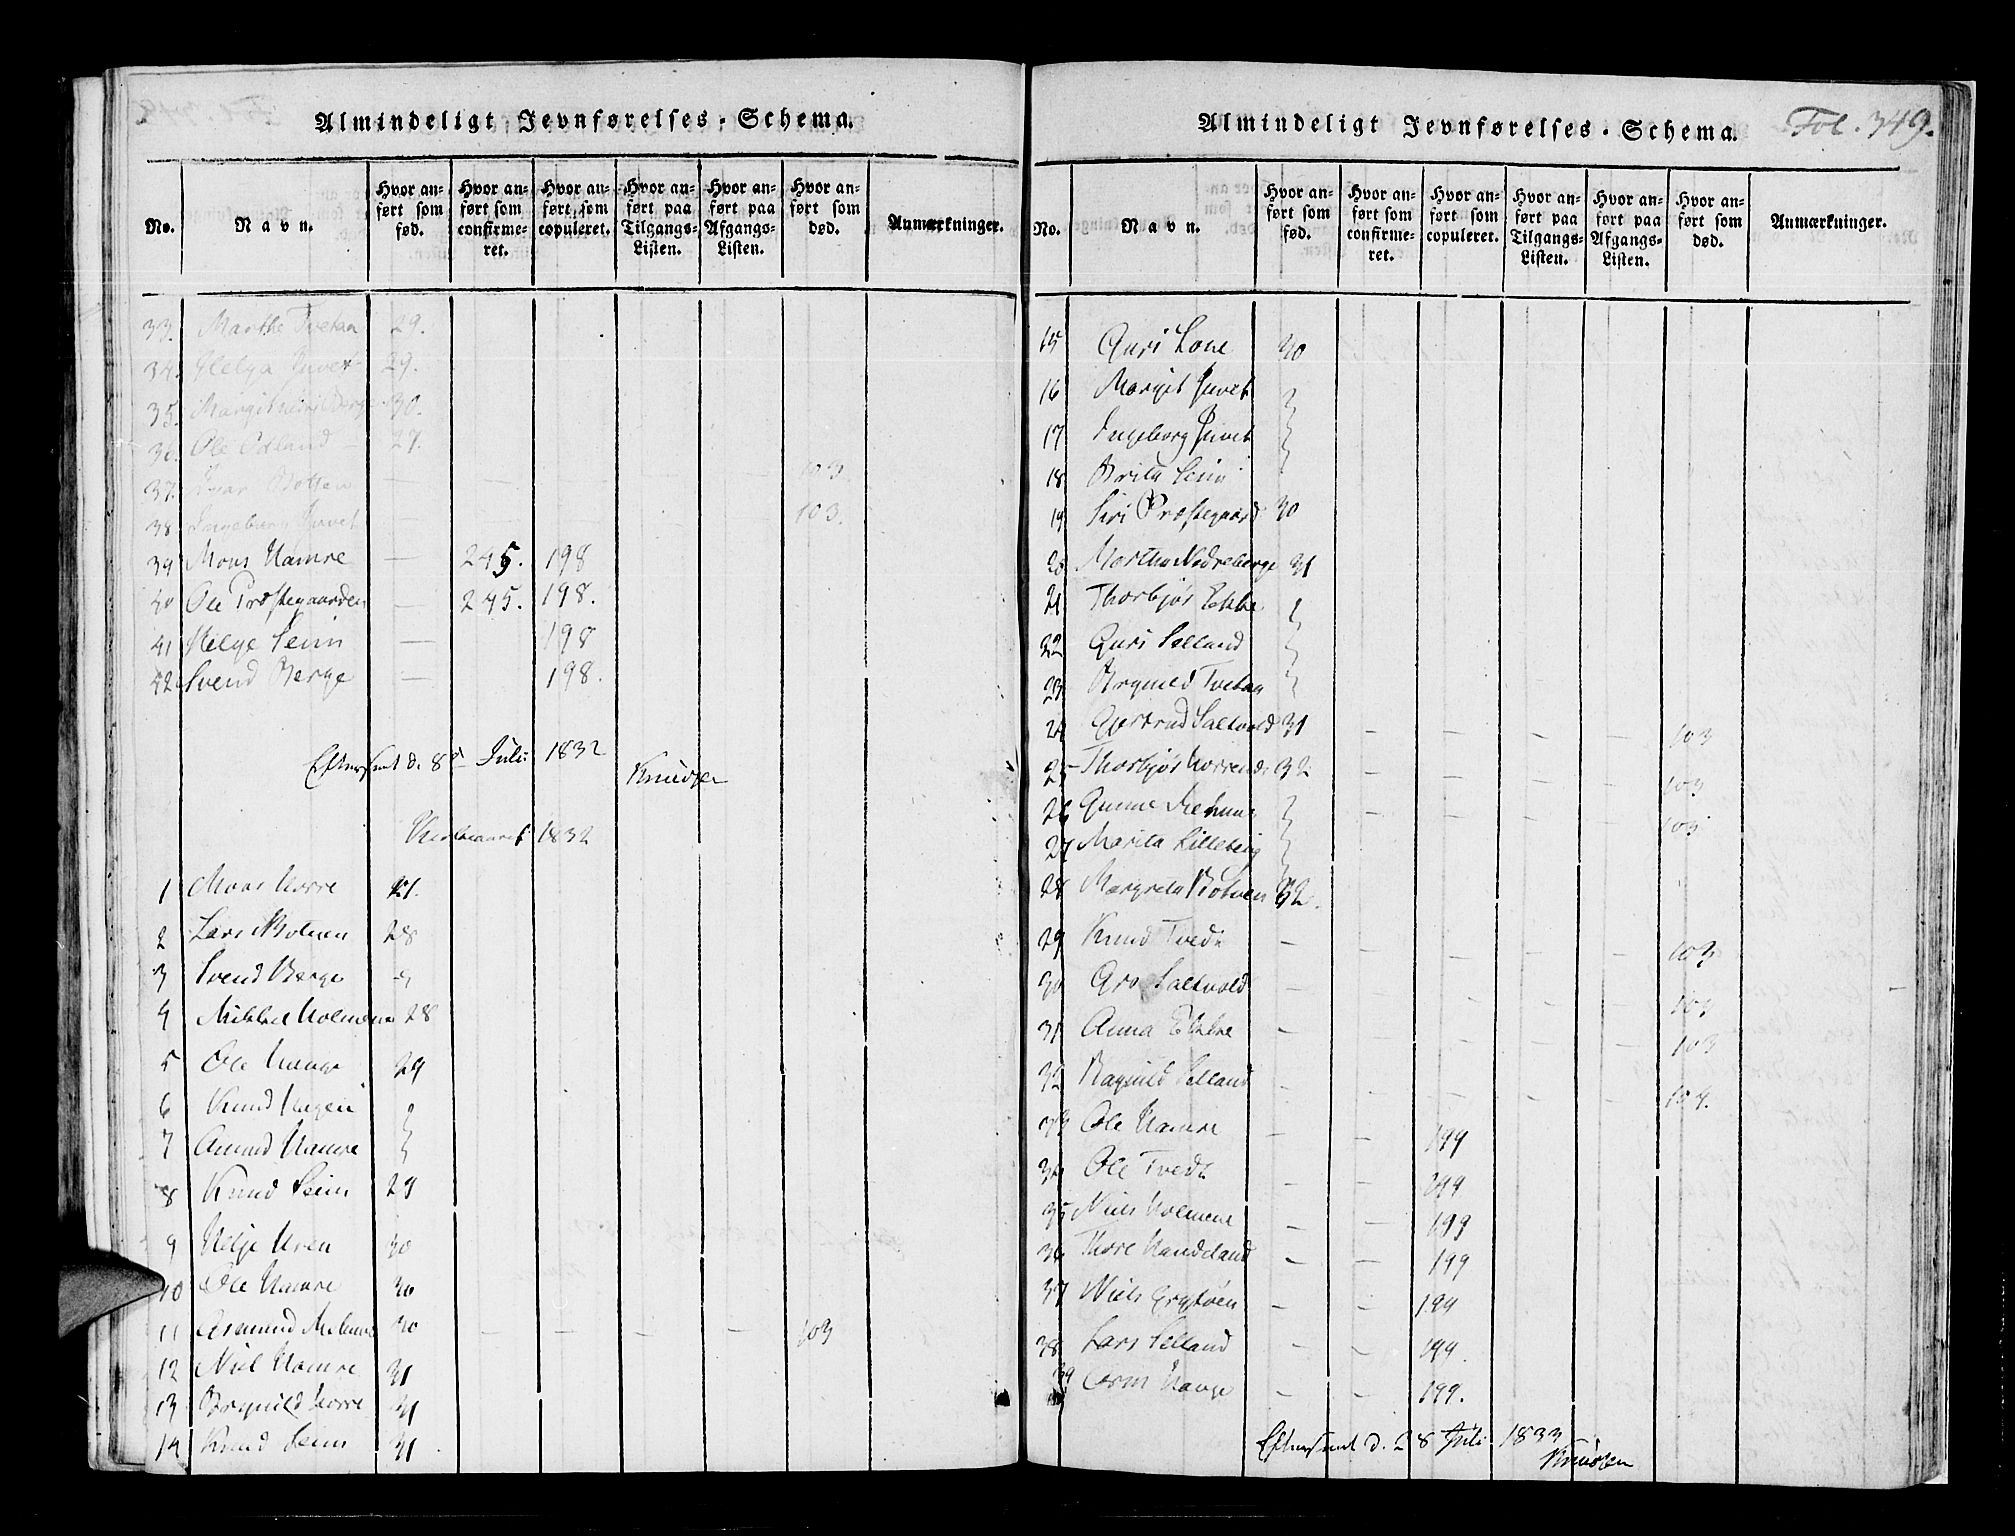 Almindeligt Jevnførelses-Schema.
No. Navn. Hvor anført som fød. Hvor anført som confirmeret. Hvor anført som copuleret. Hvor anført paa Tilgangs-Listen. Hvor anført paa Afgangs-Listen. Hvor anført som død. Anmærkninger.
33. Marthe Tvetaa 29.
34. Helga Juvet 29.
35. Margit 30.
36. Ole 29.
37. Botten — — — 103.
38 Ingeborg Juvet 103.
39 Mons Hamre — 245. 198
40 Ole Præstegaarden — 245. 198.
41 Helge Seim — 198
42 Svend Berge — 198.
Efterseet d. 8de Juli 1832
Knudsen
Kirkeaaret 1832
1 Mons Norre 21.
2 Lars Botnen 28
3 Svend Berge
4 Mikkel Holmene 28
5 Ole Hauge 29
6 Knud Hagen
7 Amund Hamre
8 Knud Seim 29
9 Helje Hren 30
10 Ole Hamre 30
11 Asmund Mehuus 30 — — — — 103
12 Niel Hamre 31
13 Brynild Norre 31
14 Knud Seim 31
Almindeligt Jevnførelses-Schema.
Fol. 349.
No. Navn. Hvor anført som fød. Hvor anført som confirmeret. Hvor anført som copuleret. Hvor anført paa Tilgangs-Listen. Hvor anført paa Afgangs-Listen. Hvor anført som død. Anmærkninger.
15 Guri Lone 30
16 Margit Juvet
17 Ingeborg Juvet
18 Brita Seim
19 Siri Præstegaard 30
20 Martha Nedreberge 31
21 Thorbjør Ekke
22 Guri Selland
23 Brynild Tvetaa
24 Gjertrud Saltvold 31 — — — — 103
25 Thorbjør 32 — — — — 103
26 Mehuus — — — — 103
27 Marita Lilleberg
28 Margreta Botnen 32.
29 Knud Tvedt — — — — — 103
30 Gro Saltvold — — — — 103
31 Anna — — — — — 103
32 Ragnild Selland — — — — — 104.
33 Ole Hamre — — 199
34 Ole Tvedt 199
35 Niels Holmene — — 199
36 Thore Handeland — — 199
37 Niels — — 199
38 Lars Selland — — 199.
39 Hauge — — 199.
Efterseet d. 28 Juli 1833
Knudsen